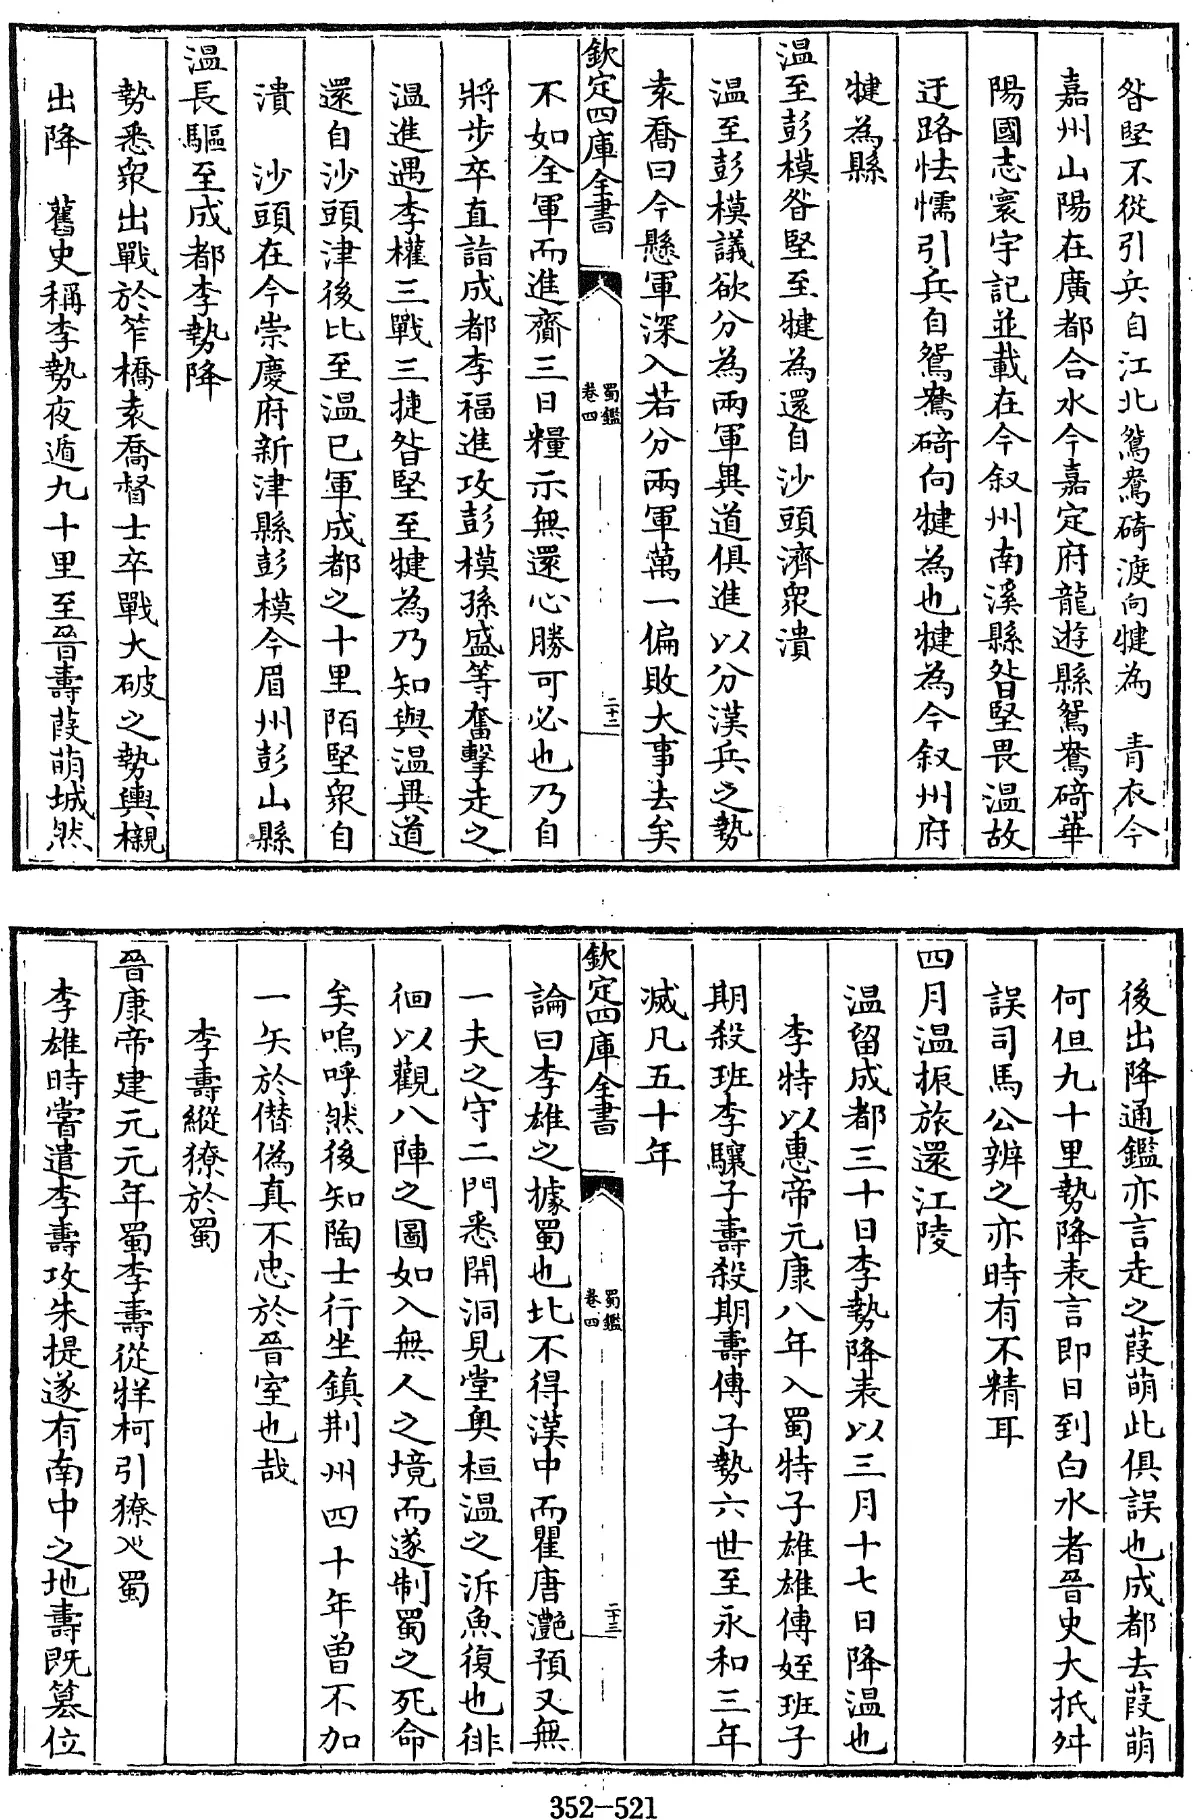 昝堅不從引兵自江北鴛鴦碕渡向犍為　青衣今
嘉州山陽在廣都合水今嘉定府龍遊縣鴛鴦碕華
陽國志寰宇記並載在今叙州南溪縣昝堅畏温故
迂路怯懦引兵自鴛鴦碕向犍為也犍為今叙州府
犍為縣
温至彭模昝堅至犍為還自沙頭濟衆潰
温至彭模議欲分為兩軍異道俱進以分漢兵之勢
袁喬曰今懸軍深入若分兩軍萬一偏敗大事去矣
欽定四庫全書
蜀鑑
卷四
二十二
不如全軍而進齎三日糧示無還心勝可必也乃自
將步卒直詣成都李福進攻彭模孫盛等奮擊走之
温進遇李權三戰三捷昝堅至犍為乃知與温異道
還自沙頭津後比至温已軍成都之十里陌堅衆自
潰　沙頭在今崇慶府新津縣彭模今眉州彭山縣
温長驅至成都李勢降
勢悉衆出戰於笮橋袁喬督士卒戰大破之勢輿櫬
出降　舊史稱李勢夜遁九十里至晉壽葭萌城然
後出降通鑑亦言走之葭萌此俱誤也成都去葭萌
何但九十里勢降表言即日到白水者晉史大抵舛
誤司馬公辨之亦時有不精耳
四月温振旅還江陵
温留成都三十日李勢降表以三月十七日降温也
李特以惠帝元康八年入蜀特子雄雄傳姪班子
期殺班李驤子壽殺期壽傳子勢六世至永和三年
滅凡五十年
欽定四庫全書
蜀鑑
卷四
二十三
論曰李雄之據蜀也北不得漢中而瞿唐灔預又無
一夫之守二門悉開洞見堂奥桓温之泝魚復也徘
徊以觀八陣之圖如入無人之境而遂制蜀之死命
矣嗚呼然後知陶士行坐鎮荆州四十年曽不加
一矢於僭偽真不忠於晉室也哉
李壽縱獠於蜀
晉康帝建元元年蜀李壽從牂柯引獠入蜀
李雄時嘗遣李壽攻朱提遂有南中之地壽既簒位
352-521